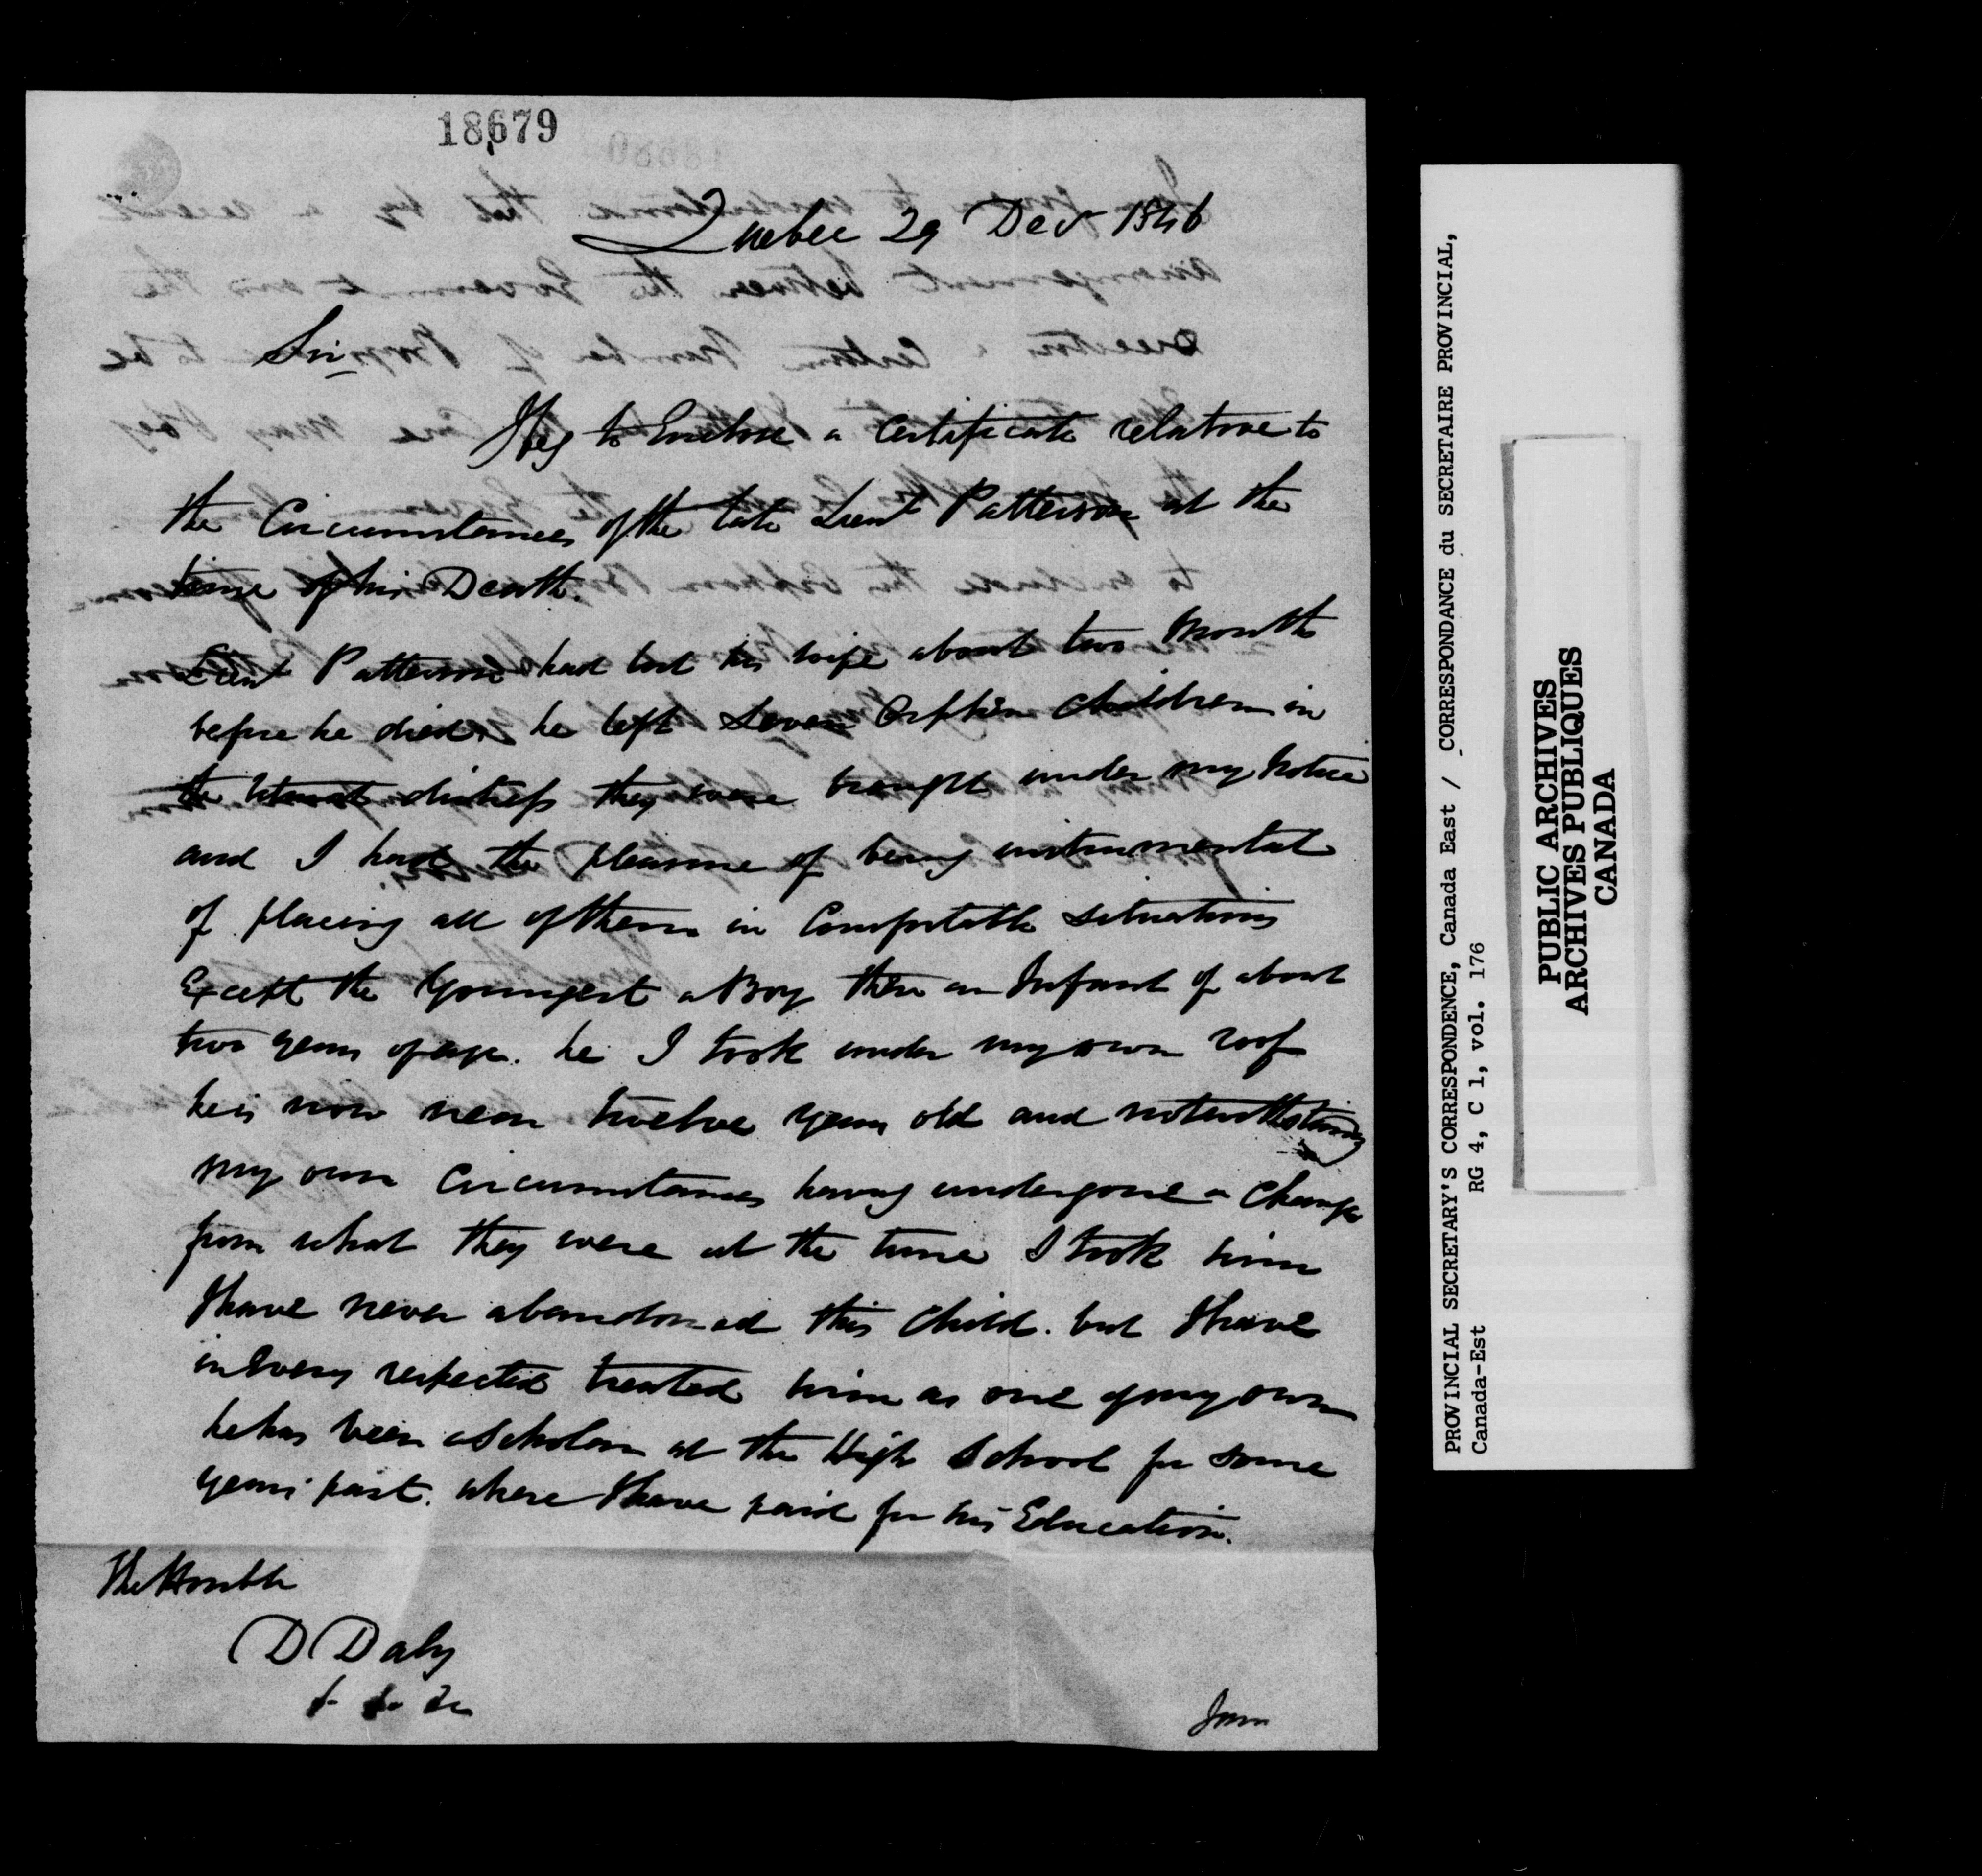 18679
Quebec 29 Decr 1846
Sir
I beg to Enclose a Certificate relative to
the Circumstances of the late Lieut Patterson at the
time of his Death.
Lieut Patterson had lost his wife about two Months
before he died. he left Seven Orphan Children in
the utmost distress they were brought under my Notice
and I had the pleasure of being instrumental
of placing all of them in Comfortable Situations
Except the Youngest a Boy then an Infant of about
two years of age. he I took under my own roof
he is now near twelve years old and notwithstanding
my own Circumstances having undergone a Change
from what they were at the time I took him
I have never abandoned this Child. but I have
in Every respected treated him as one of my own
he has been a Scholar at the High School for some
years past. where I have paid for his Education.
The Honble
D Daly
&c &c &c
PROVINCIAL SECRETARY'S CORRESPONDENCE, Canada East / CORRESPONDANCE du SECRETAIRE PROVINCIAL,
Canada-Est RG 4, C 1, vol. 176
PUBLIC ARCHIVES
ARCHIVES PUBLIQUES
CANADA